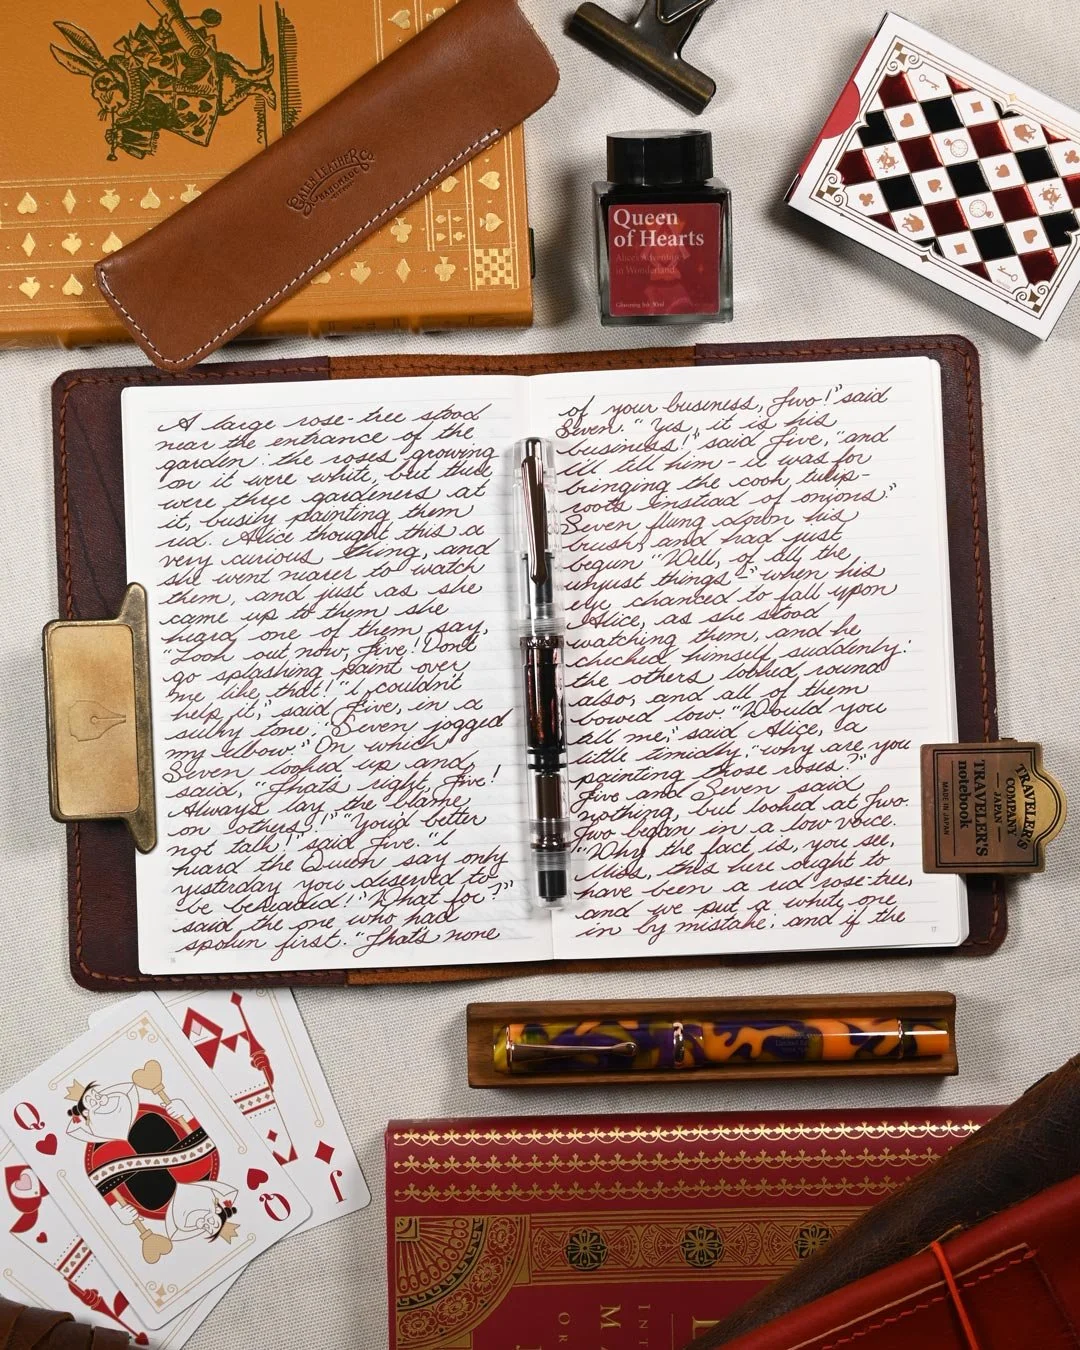 GALEN LEATHER CO.
HANDMADE
Queen
of Hearts
Alice's Adventures
in Wonderland
Glistening Ink 30ml
A large rose-tree stood
near the entrance of the
garden: the roses growing
on it were white, but there
were three gardeners at
it, busily painting them
red. Alice thought this a
very curious thing, and
she went nearer to watch
them, and just as she
came up to them she
heard one of them say,
"Look out now, Five! Don't
go splashing paint over
me like that!" "I couldn't
help it," said Five, in a
sulky tone. "Seven jogged
my elbow." On which
Seven looked up and
said, "That's right, Five!
Always lay the blame
on others!" "You'd better
not talk!" said Five. "I
heard the Queen say only
yesterday you deserved to
be beheaded!" "What for?"
said the one who had
spoken first. "That's none
16
of your business, Two!" said
Seven. "Yes, it is his
business!" said Five, "and
I'll tell him - it was for
bringing the cook tulip-
roots instead of onions."
Seven flung down his
brush, and had just
begun "Well, of all the
unjust things -" when his
eye chanced to fall upon
Alice, as she stood
watching them, and he
checked himself suddenly:
the others looked round
also, and all of them
bowed low. "Would you
tell me," said Alice, a
little timidly, "why are you
painting those roses?"
Five and Seven said
nothing, but looked at Two.
Two began in a low voice.
"Why the fact is, you see,
Miss, this here ought to
have been a red rose-tree,
and we put a white one
in by mistake; and if the
17
TRAVELER'S
COMPANY
JAPAN
TRAVELER'S
notebook
MADE IN JAPAN
Q
Q
J